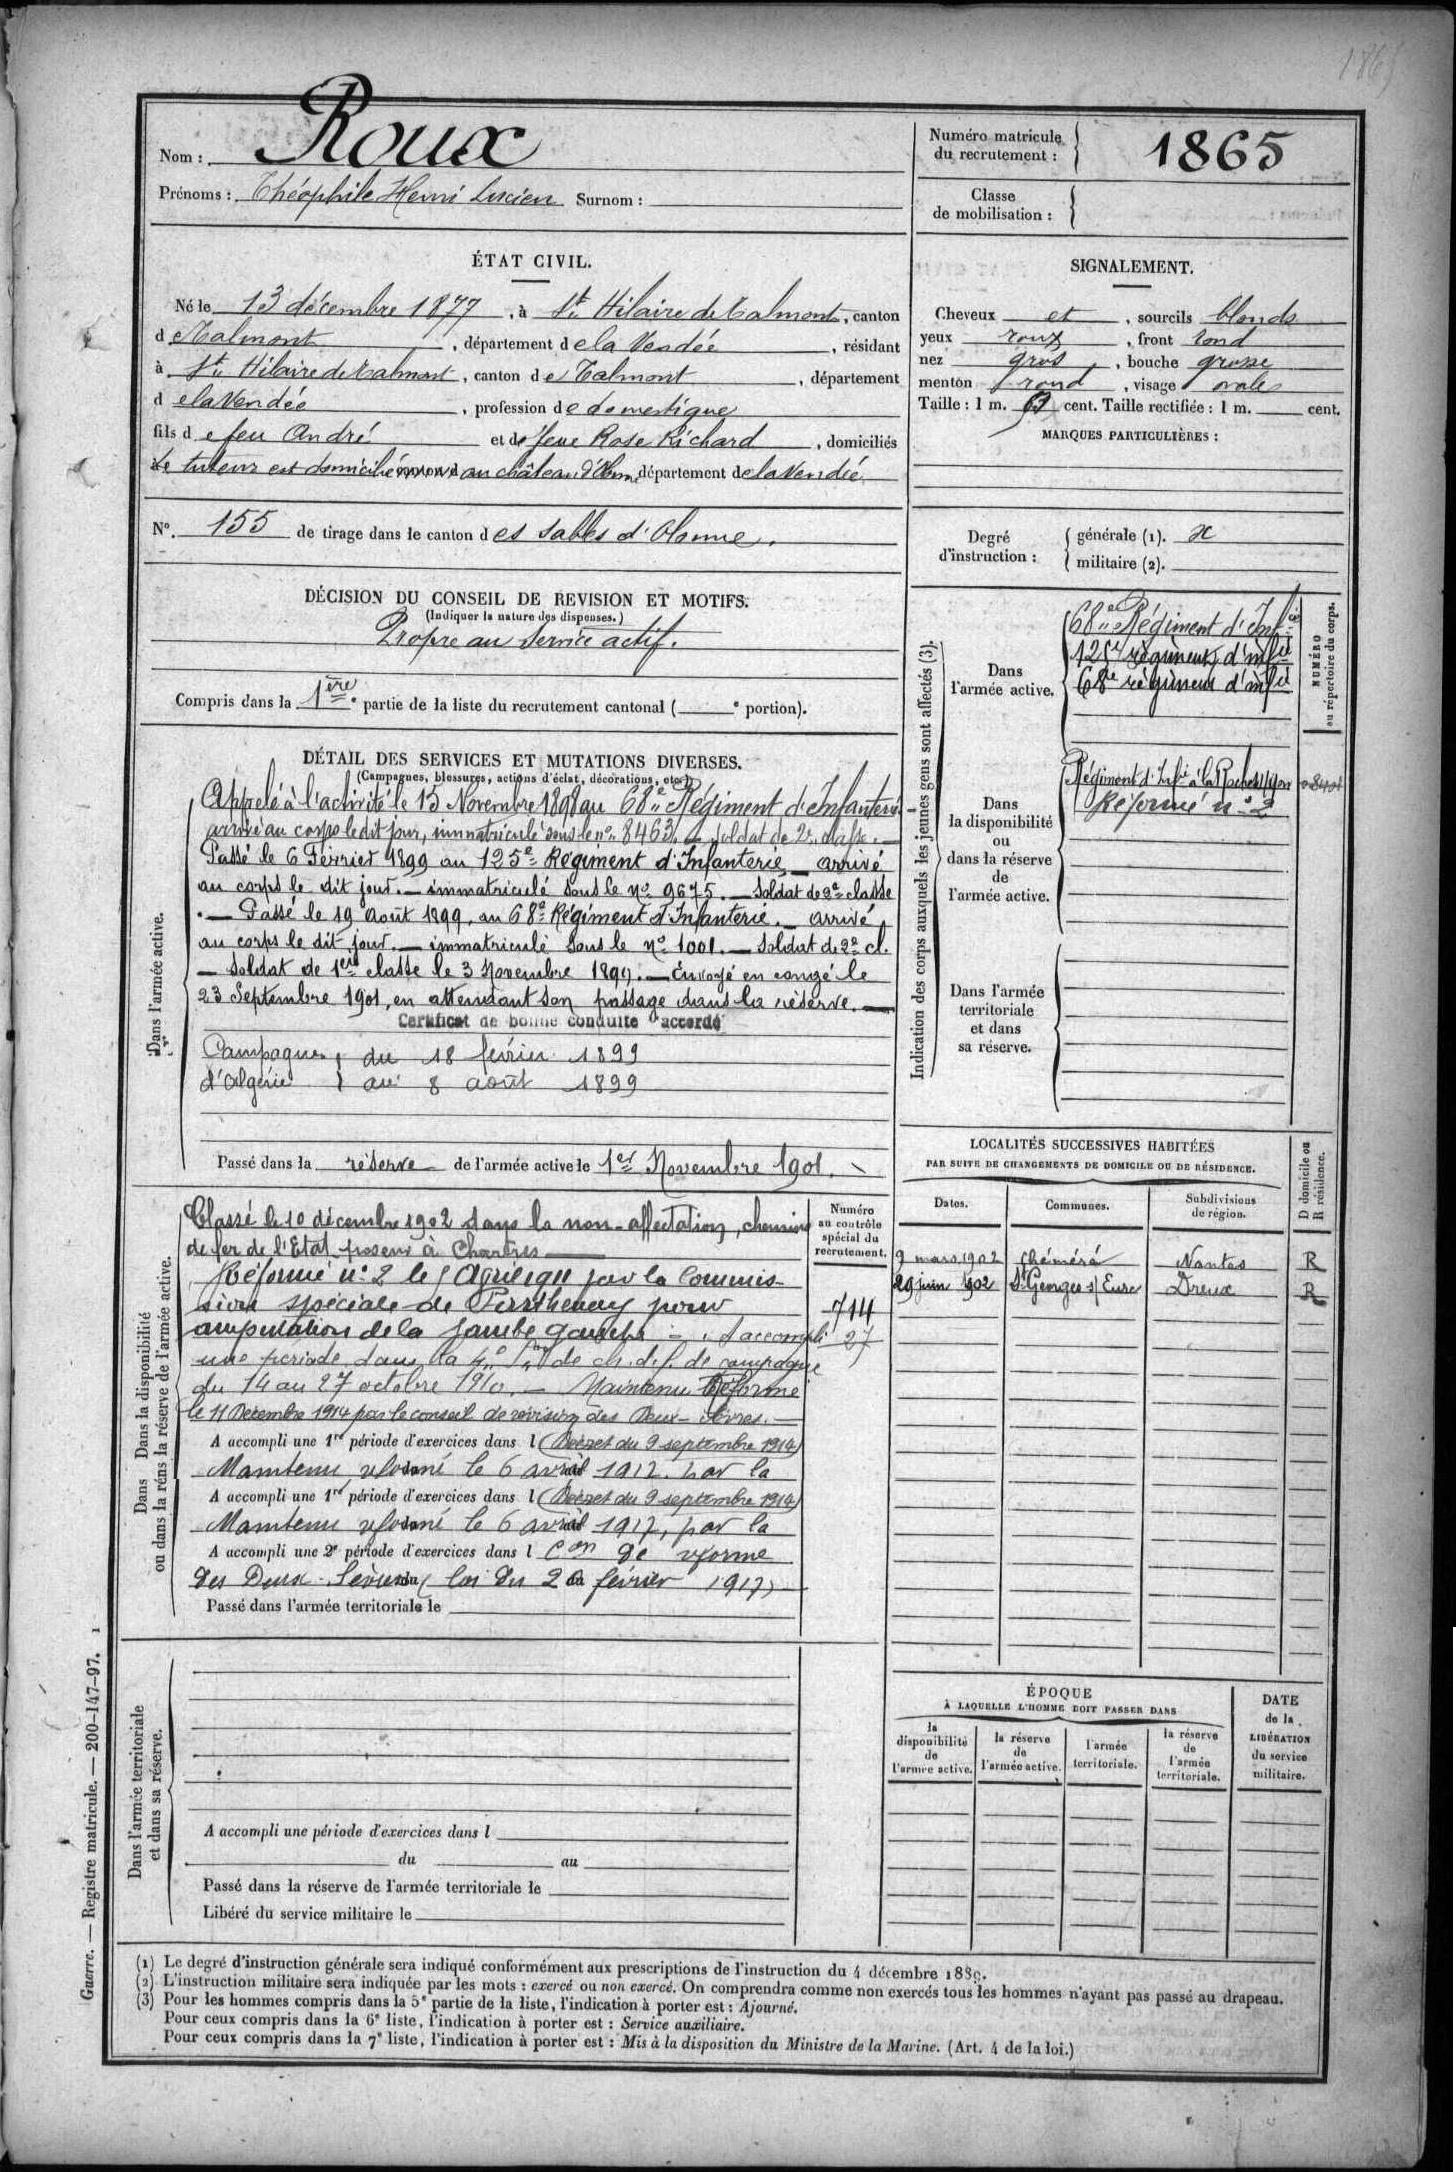 1865
Nom : Roux
Prénoms : Théophile Henri Lucien Surnom :
Numéro matricule du recrutement : 1865
Classe de mobilisation :
ÉTAT CIVIL.
Né le 13 décembre 1877, à St Hilaire de Talmont, canton
de Talmont, département de la Vendée, résidant
à St Hilaire de Talmont, canton de Talmont, département
de la Vendée, profession de domestique
fils de feu André et de feue Rose Richard, domiciliés
Le tuteur est domicilié au château d'Olonne, département de la Vendée
N°. 155 de tirage dans le canton des Sables d'Olonne.
SIGNALEMENT.
Cheveux et, sourcils blonds
yeux roux, front rond
nez gros, bouche grosse
menton rond, visage ovale
Taille : 1 m. cent. Taille rectifiée : 1 m. cent.
MARQUES PARTICULIÈRES :
Degré d'instruction : générale (1). x
militaire (2).
DÉCISION DU CONSEIL DE REVISION ET MOTIFS.
(Indiquer la nature des dispenses.)
Propre au service actif.
Compris dans la 1ère partie de la liste du recrutement cantonal ( e portion).
DÉTAIL DES SERVICES ET MUTATIONS DIVERSES.
(Campagnes, blessures, actions d'éclat, décorations, etc.)
Dans l'armée active.
Appelé à l'activité le 15 Novembre 1898 au 68e Régiment d'Infanterie
arrivé au corps le dit jour, immatriculé sous le n° 8463. — Soldat de 2e classe. —
Passé le 6 Février 1899 au 125e Régiment d'Infanterie, — arrivé
au corps le dit jour. — immatriculé sous le n° 9675. — Soldat de 2e classe
. — Passé le 19 Août 1899, au 68e Régiment d'Infanterie. — arrivé
au corps le dit jour. — immatriculé sous le n° 1001. — Soldat de 2e cl.
— Soldat de 1ere classe le 3 Novembre 1899. — Envoyé en congé le
23 Septembre 1901, en attendant son passage dans la réserve. —
Certificat de bonne conduite accordé
Campagne } du 18 février 1899
d'Algérie } au 8 août 1899
Passé dans la réserve de l'armée active le 1er Novembre 1901.
Indication des corps auxquels les jeunes gens sont affectés (3).
NUMÉRO au répertoire du corps.
Dans l'armée active.
68e Régiment d'Infie
125e régiment d'infie
68e régiment d'infie
Dans la disponibilité ou dans la réserve de l'armée active.
Régiment d'Infie à la Roche s/yon
Réformé n° 2
Dans l'armée territoriale et dans sa réserve.
Dans la disponibilité
Dans ou dans la réserve de l'armée active.
Numéro au contrôle spécial du recrutement.
Classé le 10 décembre 1902 dans la non-affectation, chemins
de fer de l'Etat poseur à Chartres
Réformé n° 2 le Avril 1911 par la Commis-
sion spéciale de Parthenay pour
amputation de la jambe gauche — A accompli
une période dans la 4e Son de ch. d. f. de campagne
du 14 au 27 octobre 1910. — Maintenu Réformé
le 11 Décembre 1914 par le conseil de révision des Deux-Sèvres. —
714
27
A accompli une 1re période d'exercices dans l (Décret du 9 septembre 1914)
Maintenu réformé le 6 avril 1917. par la
A accompli une 1re période d'exercices dans l (Décret du 9 septembre 1914)
Maintenu réformé le 6 avril 1917, par la
A accompli une 2e période d'exercices dans l Con de réforme
des Deux-Sèvres (loi du 20 février 1917)
Passé dans l'armée territoriale le
LOCALITÉS SUCCESSIVES HABITÉES
PAR SUITE DE CHANGEMENTS DE DOMICILE OU DE RÉSIDENCE.
D domicile ou R résidence.
Dates. Communes. Subdivisions de région.
9 mars 1902 Chéméré Nantes R
29 juin 1902 St Georges s/ Eure Dreux R
Dans l'armée territoriale et dans sa réserve.
A accompli une période d'exercices dans l
du au
Passé dans la réserve de l'armée territoriale le
Libéré du service militaire le
ÉPOQUE
À LAQUELLE L'HOMME DOIT PASSER DANS
la disponibilité de l'armée active.
la réserve de l'armée active.
l'armée territoriale.
la réserve de l'armée territoriale.
DATE de la LIBÉRATION du service militaire.
(1) Le degré d'instruction générale sera indiqué conformément aux prescriptions de l'instruction du 4 décembre 1889.
(2) L'instruction militaire sera indiquée par les mots : exercé ou non exercé. On comprendra comme non exercés tous les hommes n'ayant pas passé au drapeau.
(3) Pour les hommes compris dans la 5e partie de la liste, l'indication à porter est : Ajourné.
Pour ceux compris dans la 6e liste, l'indication à porter est : Service auxiliaire.
Pour ceux compris dans la 7e liste, l'indication à porter est : Mis à la disposition du Ministre de la Marine. (Art. 4 de la loi.)
Guerre. — Registre matricule. — 200-147-97. 1